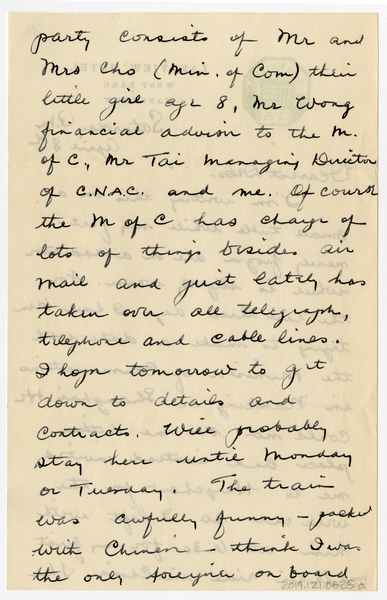 party consists of Mr and
Mrs Cho (Min. of Com) their
little girl age 8, Mr Wong
financial advisor to the M.
of C., Mr Tai Managing Director
of C.N.A.C. and me. Of course
the M of C has charge of
lots of things besides air
mail and just lately has
taken over all telegraph,
telephone and cable lines.
I hope tomorrow to get
down to details and
contracts. Will probably
stay here until Monday
or Tuesday. The train
was awfully funny – packed
with Chinese – think I was
the only foreigner on board
2019.121.0625